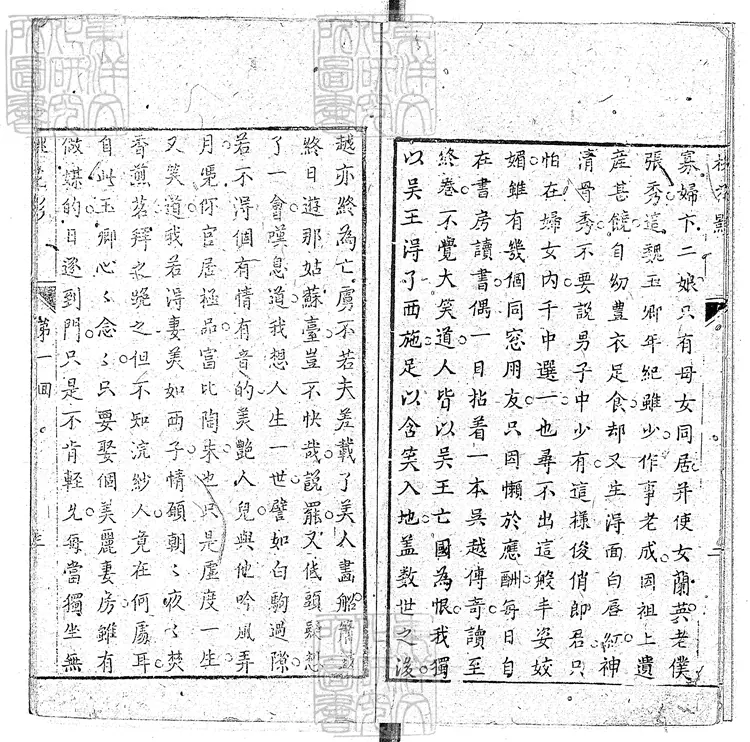 寡婦卞二娘只有母女同居并使女蘭英老僕
張秀這魏玉卿年紀雖少作事老成因祖上遺
産甚饒自幼豊衣足食却又生得面白唇紅神
清骨秀不要說男子中少有這樣俊俏郎君只
怕在婦女內千中選一也尋不出這般丰姿姣
媚雖有幾個同窓朋友只因懶於應酬每日自
在書房讀書偶一日拈着一本吳越傳奇讀至
終卷不覺大笑道人皆以吳王亡國為恨我獨
以吳王得了西施足以含笑入地盖数世之後
越亦終為亡虜不若夫差載了美人畵船簫鼓
終日遊那姑蘇臺豈不快哉說罷又低頭疑想
了一會嘆息道我想人生一世譬如白駒過隙
若不得個有情有音的美艷人兒與他吟風弄
月凴你官居極品富比陶朱也只是虛度一生
又笑道我若得妻美如西子情頋朝々夜々焚
香煎茗拜衣跪之但不知浣紗人竟在何處耳
自此玉卿心々念々只要娶個美麗妻房雖有
做媒的日逐到門只是不肯輕允每當獨坐無
第一回